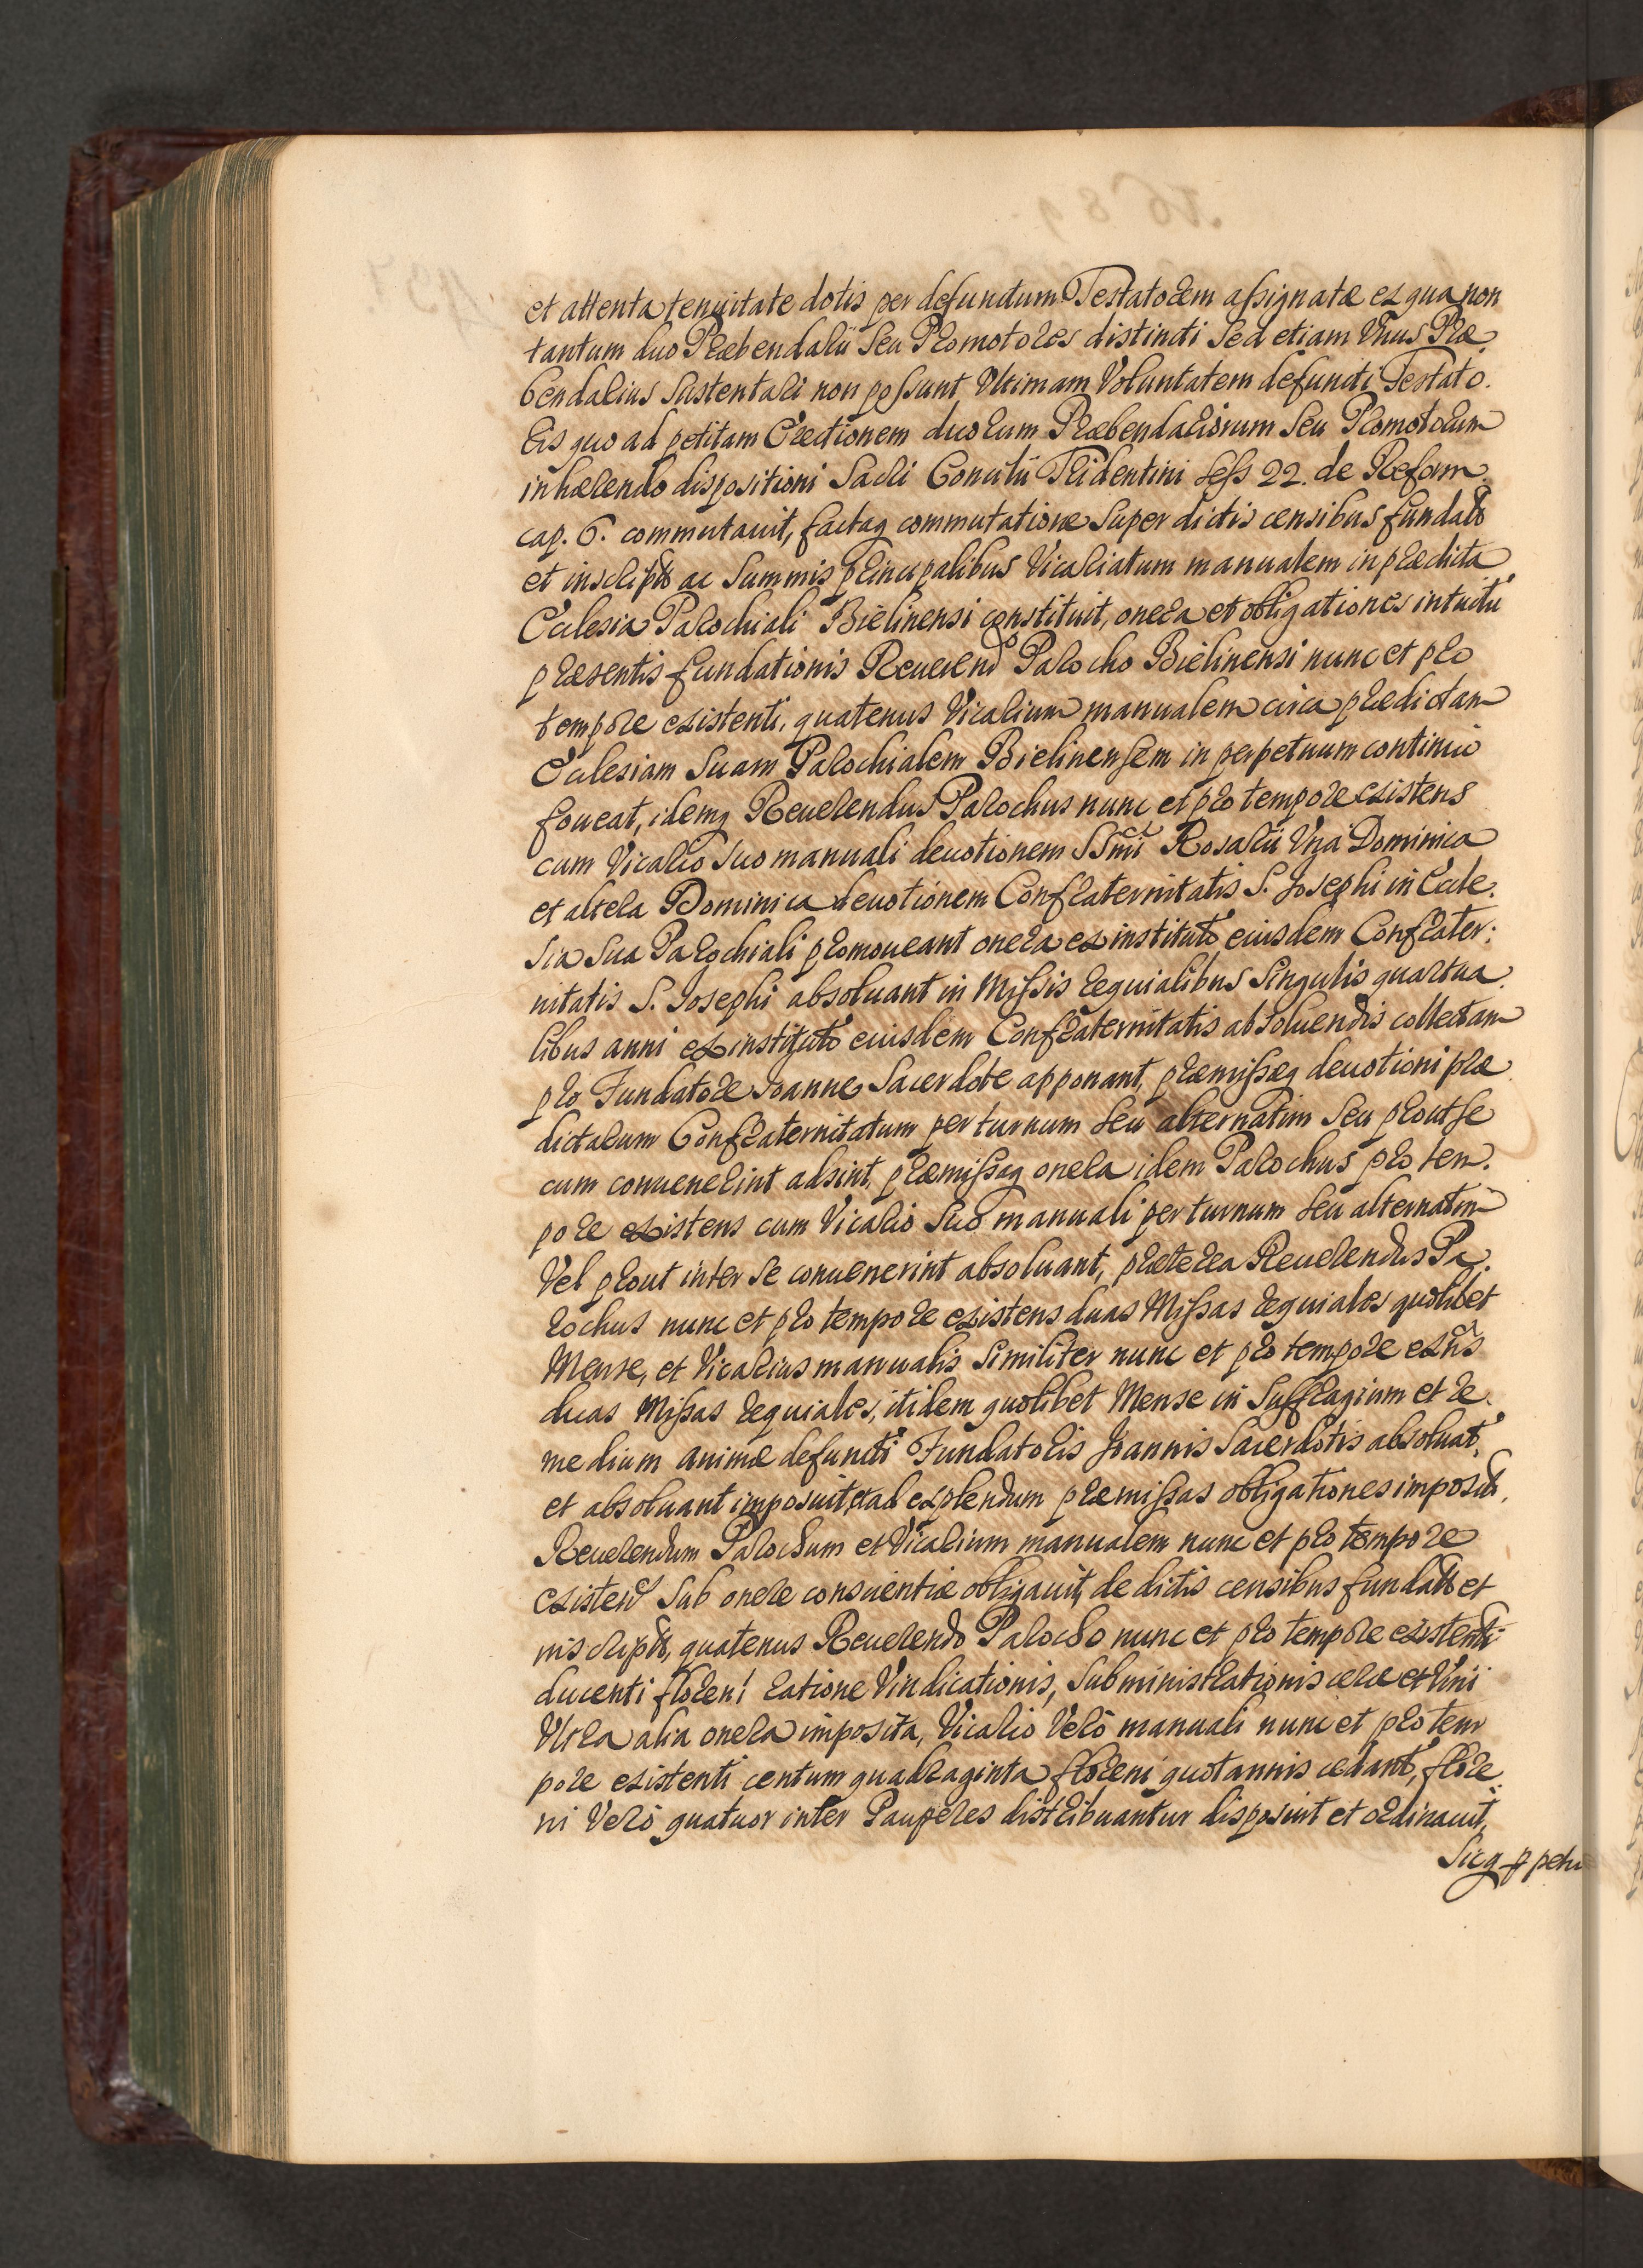 et attenta tenuitate dotis per defunctum Testatorem assignatæ ex qua non
tantum duo Præbendarii seu Promotores distincti sed etiam Vnus Præ
bendarius sustentari non possunt Vltimam Voluntatem defuncti Testato.
ris quo ad petitam Erectionem duorum Præbendariorum seu Promotorum
inhærendo dispositioni Sacri Concilii Tridentini Sess 22. de Reform.
cap. 6. commutauit, factaq commutatione super dictis censibus fundatis
et inscriptis ac summis principalibus Vicariatum manualem in prædicta
Ecclesia Parochiali Bielinensi constituit, onera et obligationes intuitu
præsentis fundationis Reuerendo Parocho Bielinensi nunc et pro
tempore existenti, quatenus Vicarium manualem circa prædictam
Ecclesiam Suam Parochialem Bielinensem in perpetuum continuo
foueat, idemq Reuerendus Parochus nunc et pro tempore existens
cum Vicario suo manuali deuotionem SSmi Rosarii Vna Dominica
et altera Dominica deuotionem Confraternitatis S. Josephi in Eccle.
sia sua Parochiali promoueant onera ex instituto eiusdem Confrater:
nitatis S. Josephi absoluant in Missis requialibus singulis quartua.
libus anni ex instituto eiusdem Confraternitatis absoluendis collectam
pro Fundatore Joanne Sacerdote apponant, præmissæq deuotioni præ
dictarum Confraternitatum per turnum seu alternatim seu prout se
cum conuenerint adsint, præmissaq onera idem Parochus pro tem.
pore existens cum Vicario suo manuali per turnum seu alternatim
Vel prout inter se conuenerint absoluant, præterea Reuerendus Pa.
rochus nunc et pro tempore existens duas Missas requiales quolibet
Mense, et Vicarius manualis similiter nunc et pro tempore exñs
duas Missas requiales, itidem quolibet Mense in Suffragium et re.
medium animæ defuncti Fundatoris Joannis Sacerdotis absoluat,
et absoluant imposuit, et ad explendum præmissas obligationes impositas,
Reuerendum Parochum et Vicarium manualem nunc et pro tempore
existen sub onere conscientiæ obligauit, de dictis censibus fundatis et
inscriptis, quatenus Reuerendo Parocho nunc et pro tempore existenti
ducenti floreni ratione Vindicationis, subministrationis ceræ et Vini
Vltra alia onera imposita, Vicario Verò manuali nunc et pro tem
pore existenti centum quadraginta floreni quotannis cedant, flore
ni Verò quatuor inter Pauperes distribuantur disposuit et ordinauit,
Sicq ppetu